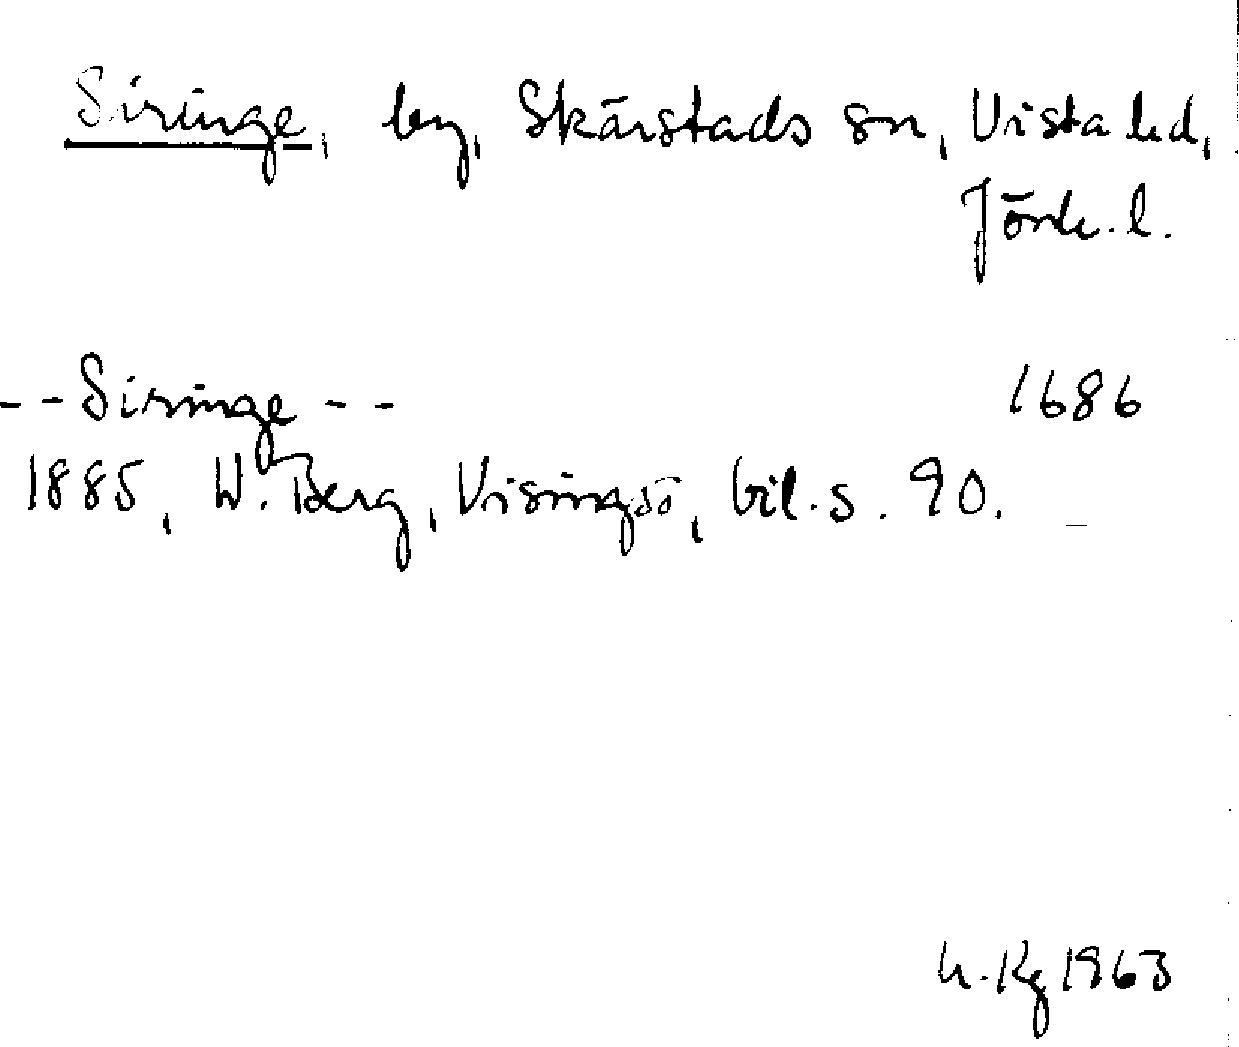 Siringe, by, Skärstads sn, Vista hd,
Jönk. l.
- - Siringe - - 1686
1885, W. Berg, Visingsö, bil. s. 90.
h. Kg 1963